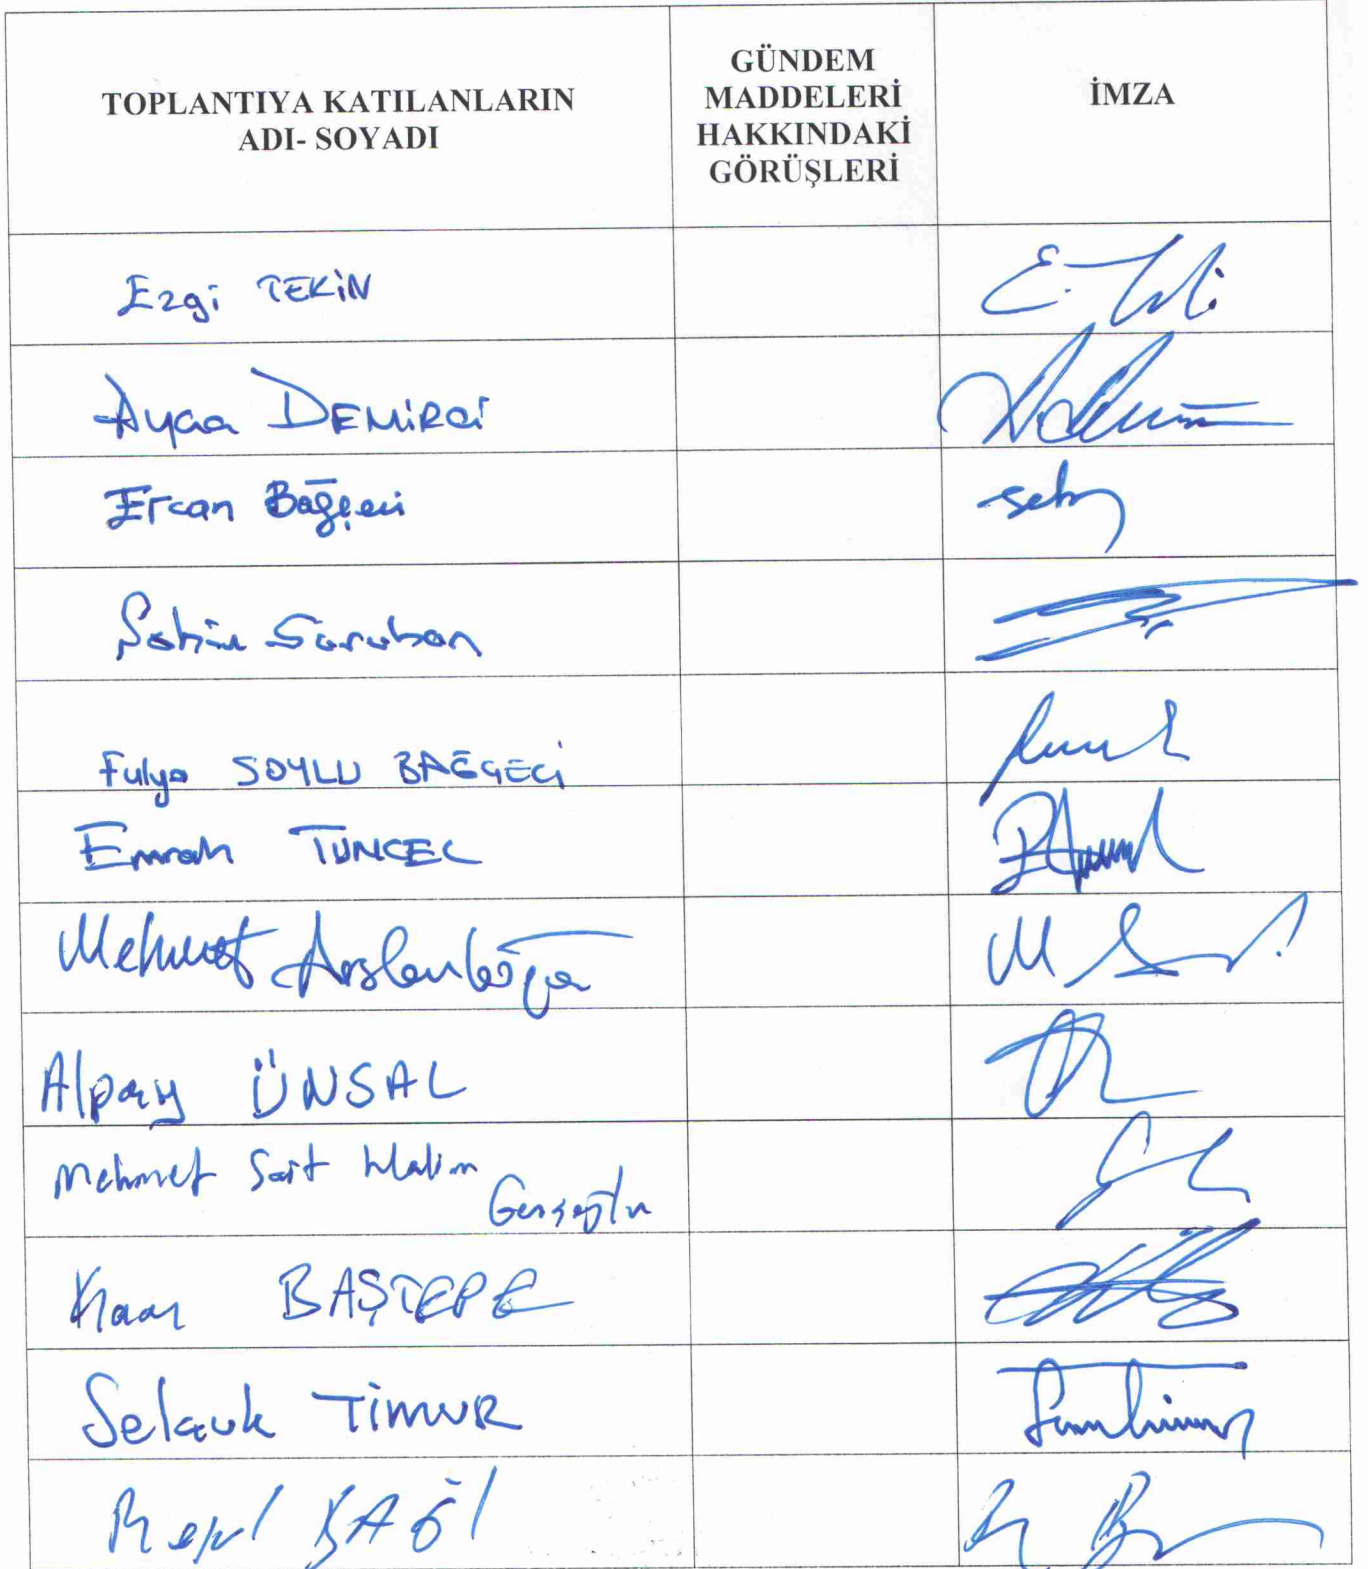 TOPLANTIYA KATILANLARIN
ADI- SOYADI
GÜNDEM
MADDELERİ
HAKKINDAKİ
GÖRÜŞLERİ
İMZA
Ezgi TEKİN
Ayça DEMİRCİ
Ercan Bağçeci
Şahin Saruhan
Fulya SOYLU BAĞÇECİ
Emrah TUNCEL
Mehmet Arslanboğa
Alpay ÜNSAL
Mehmet Sait Halim
Kaan BAŞTEPE
Selçuk TİMUR